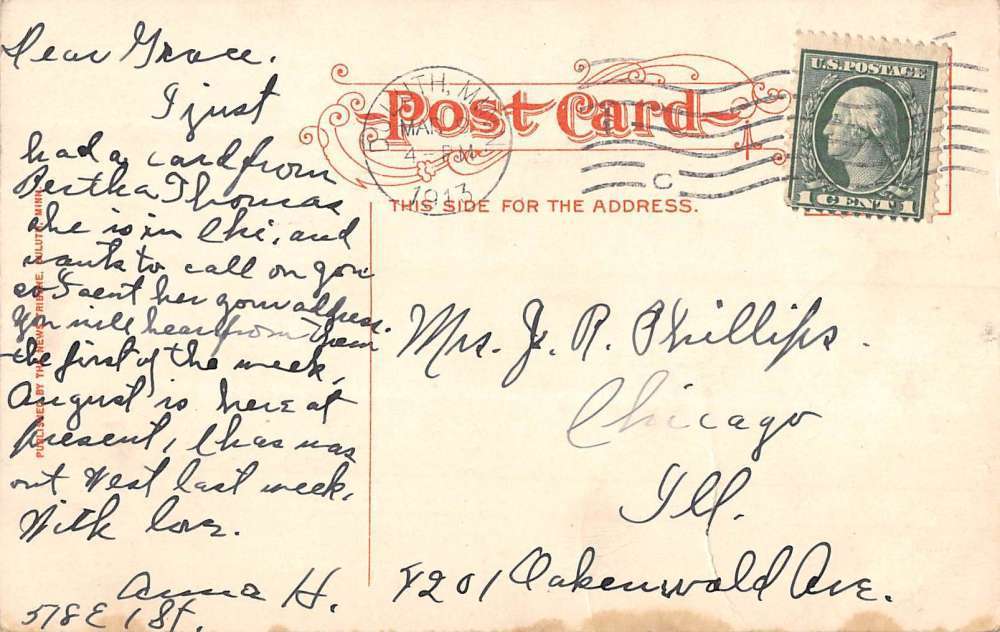 Dear Grace.
I just
had a card from
Bertha Thomas
she is in Chi, and
wants to call on you
so I sent her your address.
You will hear from them
the first of the week,
August is here at
present, Chas was
out West last week,
With love.
Anna H.
578 E 1 St.
PUBLISHED BY THE NEWS TRIBUNE, DULUTH, MINN.
Post Card
THIS SIDE FOR THE ADDRESS.
4 - PM
1913
C
U.S. POSTAGE
1 CENT 1
Mrs. J. R. Phillips.
Chicago
Ill.
4201 Oakenwald Ave.